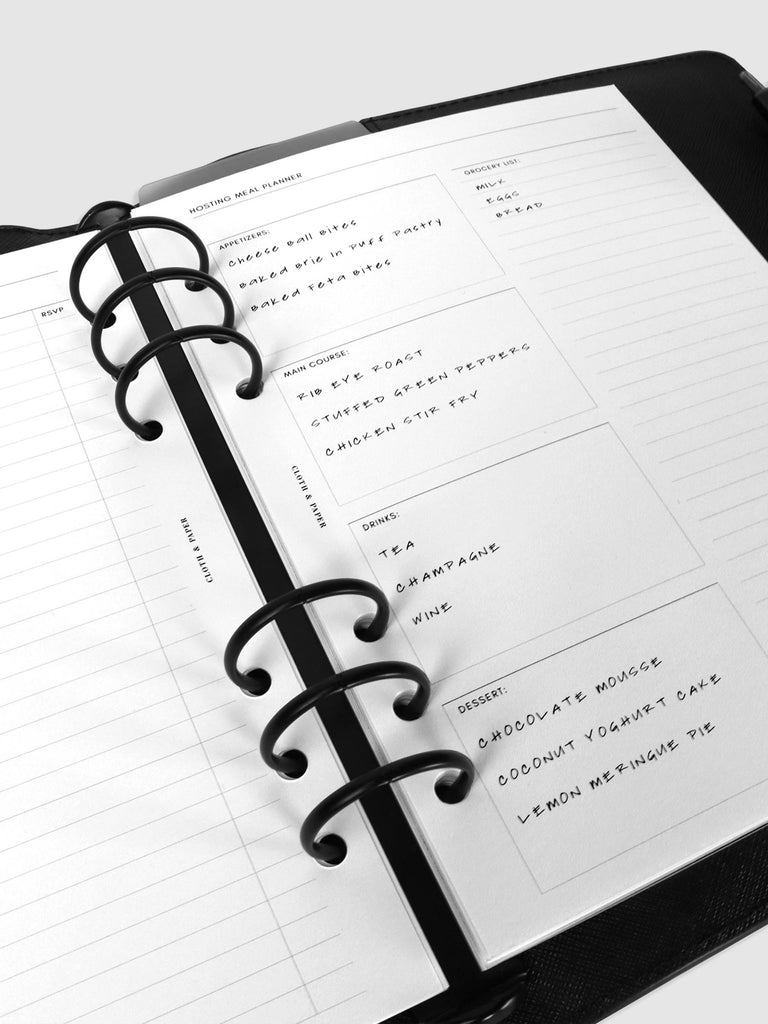 RSVP
CLOTH & PAPER
HOSTING MEAL PLANNER
APPETIZERS:
Cheese Ball Bites
Baked Brie in Puff Pastry
Baked Feta Bites
MAIN COURSE:
RIB EYE ROAST
STUFFED GREEN PEPPERS
CHICKEN STIR FRY
CLOTH & PAPER
DRINKS:
TEA
CHAMPAGNE
WINE
DESSERT:
CHOCOLATE MOUSSE
COCONUT YOGHURT CAKE
LEMON MERINGUE PIE
GROCERY LIST:
MILK
EGGS
BREAD